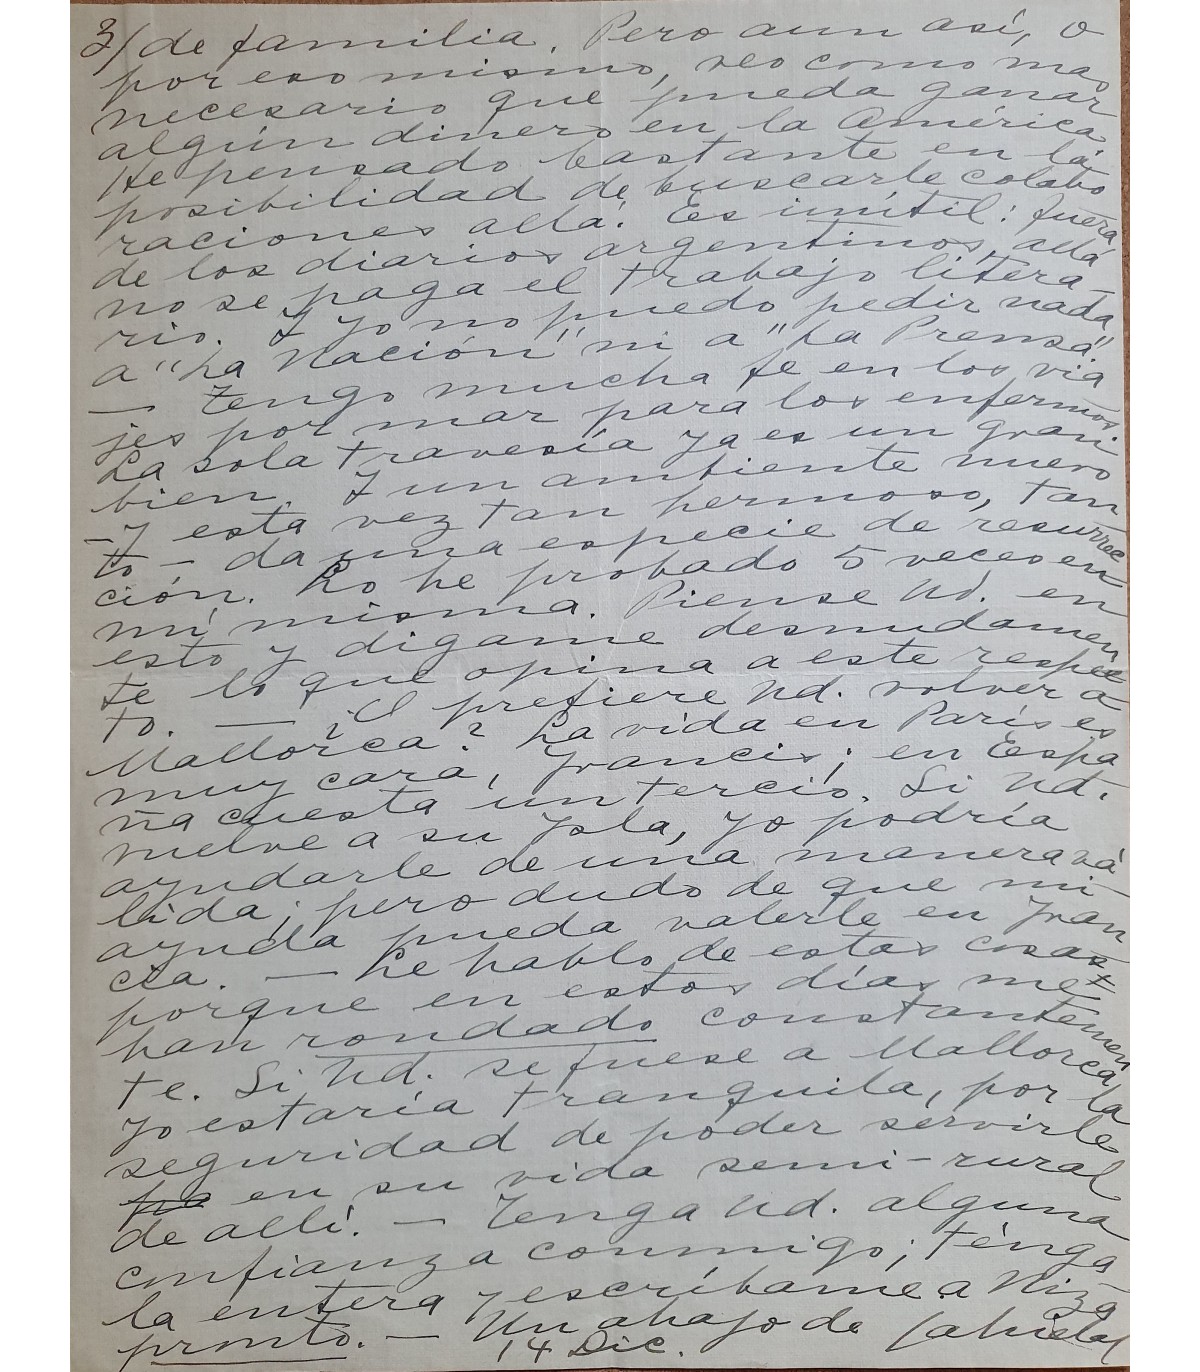 3/ de familia. Pero aun así, o
por eso mismo, veo como mas
necesario que pueda ganar
algún dinero en la América
He pensado bastante en la
posibilidad de buscarle colabo
raciones allá. Es inútil: fuera
de los diarios argentinos, allá
no se paga el trabajo litera-
rio. Y yo no puedo pedir nada
a "La Nación" ni a "La Prensa".
— Tengo mucha fe en los via
jes por mar para los enfermos.
La sola travesía ya es un gran
bien. Y un ambiente nuevo
– y esta vez tan hermoso, tan
to – da una especie de resurrec
ción. Lo he probado 5 veces en
mí misma. Piense Ud. en
esto y dígame desnudamen
te lo que opina a este respec
to. — ¿O prefiere Ud. volver a
Mallorca? La vida en París es
muy cara, Francis; en Espa
ña cuesta un tercio. Si Ud.
vuelve a su Ysla, yo podría
ayudarle de una manera vá
lida; pero dudo de que mi
ayuda pueda valerle en Fran
cia. — Le hablo de estas cosas
porque en estos días me
han rondado constantemen
te. Si Ud. se fuese a Mallorca,
yo estaría tranquila, por la
seguridad de poder servirle
en su vida semi-rural
de allí. — Tenga Ud. alguna
confianza conmigo; ténga
la entera y escríbame a Niza
pronto. — Un abrazo de Gabriela
14 Dic.